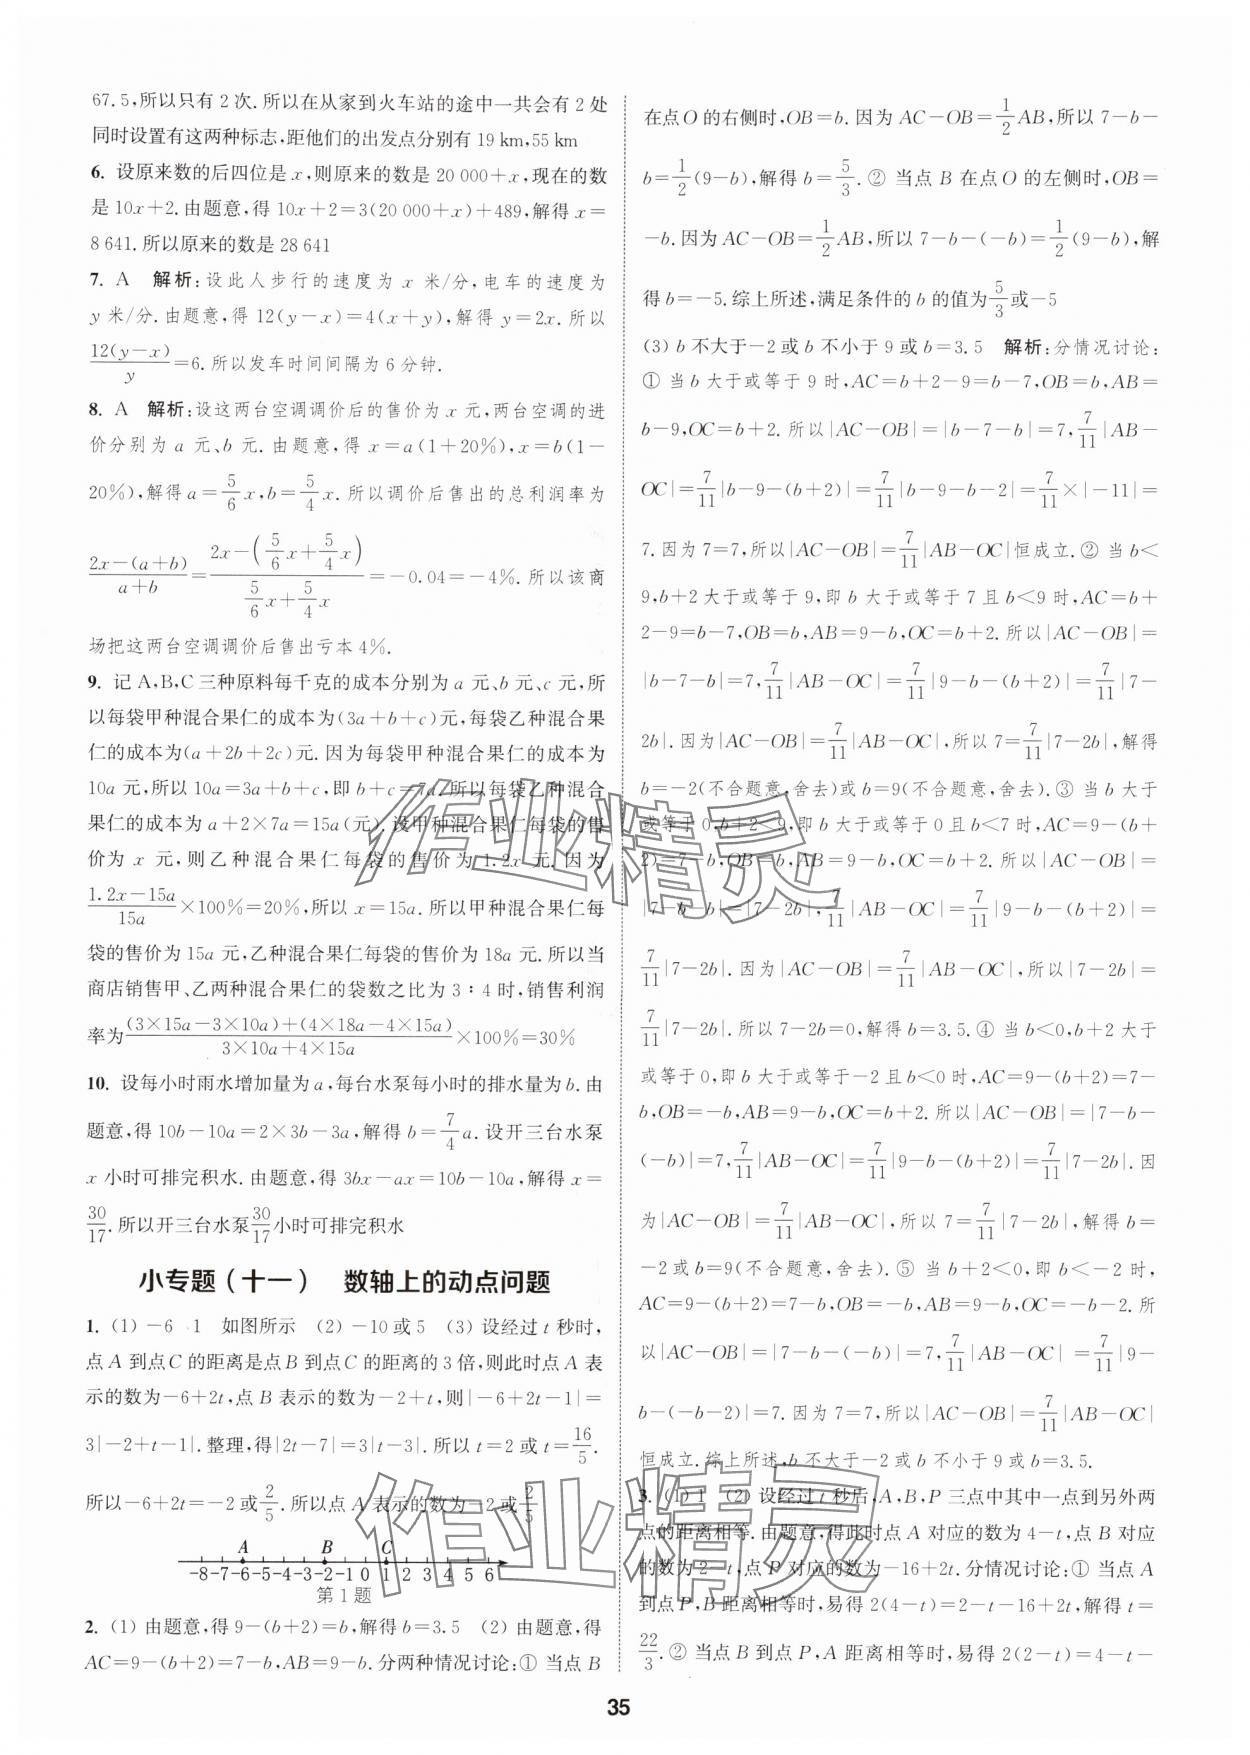 67.5,所以只有2次.所以在从家到火车站的途中一共会有2处
同时设置有这两种标志,距他们的出发点分别有19 km,55 km
6. 设原来数的后四位是x,则原来的数是20 000+x,现在的数
是10x+2.由题意,得10x+2=3(20 000+x)+489,解得x=
8 641.所以原来的数是28 641
7. A 解析:设此人步行的速度为x米/分,电车的速度为
y米/分.由题意,得12(y-x)=4(x+y),解得y=2x.所以
12(y-x)/y=6.所以发车时间间隔为6分钟.
8. A 解析:设这两台空调调价后的售价为x元,两台空调的进
价分别为a元、b元.由题意,得x=a(1+20%),x=b(1-
20%),解得a=5/6x,b=5/4x.所以调价后售出的总利润率为
(2x-(a+b))/(a+b)=(2x-(5/6x+5/4x))/(5/6x+5/4x)=-0.04=-4%.所以该商
场把这两台空调调价后售出亏本4%.
9. 记A,B,C三种原料每千克的成本分别为a元、b元、c元,所
以每袋甲种混合果仁的成本为(3a+b+c)元,每袋乙种混合果
仁的成本为(a+2b+2c)元.因为每袋甲种混合果仁的成本为
10a元,所以10a=3a+b+c,即b+c=7a.所以每袋乙种混合
果仁的成本为a+2×7a=15a(元).设甲种混合果仁每袋的售
价为x元,则乙种混合果仁每袋的售价为1.2x元.因为
(1.2x-15a)/15a×100%=20%,所以x=15a.所以甲种混合果仁每
袋的售价为15a元,乙种混合果仁每袋的售价为18a元.所以当
商店销售甲、乙两种混合果仁的袋数之比为3∶4时,销售利润
率为((3×15a-3×10a)+(4×18a-4×15a))/(3×10a+4×15a)×100%=30%
10. 设每小时雨水增加量为a,每台水泵每小时的排水量为b.由
题意,得10b-10a=2×3b-3a,解得b=7/4a.设开三台水泵
x小时可排完积水.由题意,得3bx-ax=10b-10a,解得x=
30/17.所以开三台水泵30/17小时可排完积水
小专题(十一) 数轴上的动点问题
1. (1) -6 1 如图所示 (2) -10或5 (3) 设经过t秒时,
点A到点C的距离是点B到点C的距离的3倍,则此时点A表
示的数为-6+2t,点B表示的数为-2+t,则|-6+2t-1|=
3|-2+t-1|.整理,得|2t-7|=3|t-3|.所以t=2或t=16/5.
所以-6+2t=-2或2/5.所以点A表示的数为-2或2/5
A B C
-8-7-6-5-4-3-2-1 0 1 2 3 4 5 6
第1题
2. (1) 由题意,得9-(b+2)=b,解得b=3.5 (2) 由题意,得
AC=9-(b+2)=7-b,AB=9-b.分两种情况讨论:① 当点B
在点O的右侧时,OB=b.因为AC-OB=1/2AB,所以7-b-
b=1/2(9-b),解得b=5/3.② 当点B在点O的左侧时,OB=
-b.因为AC-OB=1/2AB,所以7-b-(-b)=1/2(9-b),解
得b=-5.综上所述,满足条件的b的值为5/3或-5
(3) b不大于-2或b不小于9或b=3.5 解析:分情况讨论:
① 当b大于或等于9时,AC=b+2-9=b-7,OB=b,AB=
b-9,OC=b+2.所以|AC-OB|=|b-7-b|=7,7/11|AB-
OC|=7/11|b-9-(b+2)|=7/11|b-9-b-2|=7/11×|-11|=
7.因为7=7,所以|AC-OB|=7/11|AB-OC|恒成立.② 当b<
9,b+2大于或等于9,即b大于或等于7且b<9时,AC=b+
2-9=b-7,OB=b,AB=9-b,OC=b+2.所以|AC-OB|=
|b-7-b|=7,7/11|AB-OC|=7/11|9-b-(b+2)|=7/11|7-
2b|.因为|AC-OB|=7/11|AB-OC|,所以7=7/11|7-2b|,解得
b=-2(不合题意,舍去)或b=9(不合题意,舍去).③ 当b大于
或等于0,b+2<9,即b大于或等于0且b<7时,AC=9-(b+
2)=7-b,OB=b,AB=9-b,OC=b+2.所以|AC-OB|=
|7-b-b|=|7-2b|,7/11|AB-OC|=7/11|9-b-(b+2)|=
7/11|7-2b|.因为|AC-OB|=7/11|AB-OC|,所以|7-2b|=
7/11|7-2b|.所以7-2b=0,解得b=3.5.④ 当b<0,b+2大于
或等于0,即b大于或等于-2且b<0时,AC=9-(b+2)=7-
b,OB=-b,AB=9-b,OC=b+2.所以|AC-OB|=|7-b-
(-b)|=7,7/11|AB-OC|=7/11|9-b-(b+2)|=7/11|7-2b|.因
为|AC-OB|=7/11|AB-OC|,所以7=7/11|7-2b|,解得b=
-2或b=9(不合题意,舍去).⑤ 当b+2<0,即b<-2时,
AC=9-(b+2)=7-b,OB=-b,AB=9-b,OC=-b-2.所
以|AC-OB|=|7-b-(-b)|=7,7/11|AB-OC|=7/11|9-
b-(-b-2)|=7.因为7=7,所以|AC-OB|=7/11|AB-OC|
恒成立.综上所述,b不大于-2或b不小于9或b=3.5.
3. (1) 1 (2) 设经过t秒后,A,B,P三点中其中一点到另外两
点的距离相等.由题意,得此时点A对应的数为4-t,点B对应
的数为2-t,点P对应的数为-16+2t.分情况讨论:① 当点A
到点P,B距离相等时,易得2(4-t)=2-t-16+2t,解得t=
22/3.② 当点B到点P,A距离相等时,易得2(2-t)=4-t-
35
作业精灵
作业精灵